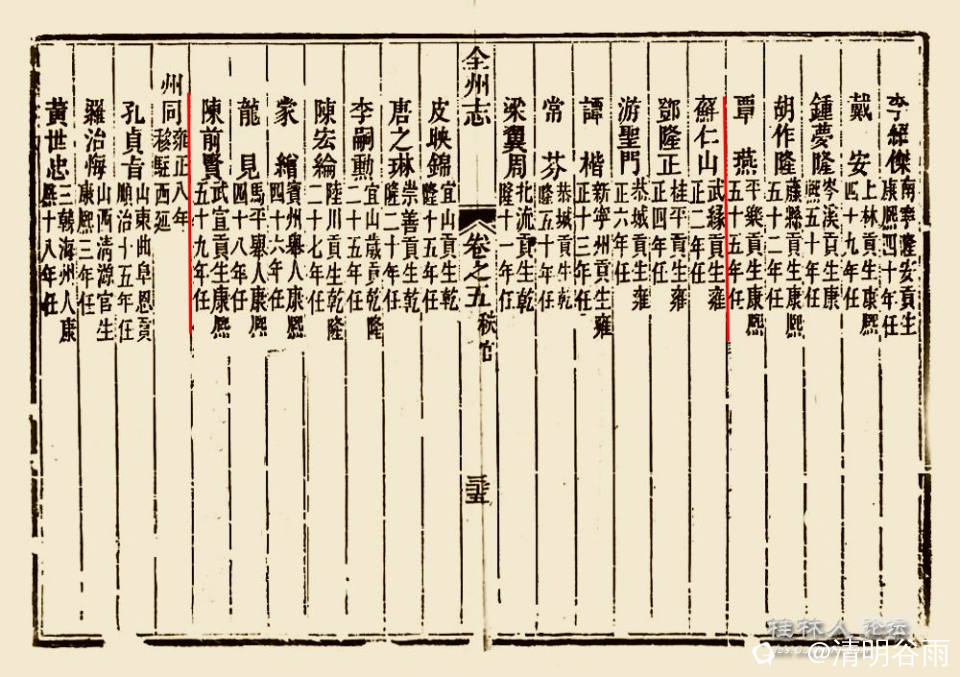 李經傑南寧隆安貢生康熙四十年任
戴安上林貢生康熙四十九年任
鍾夢隆岑溪貢生康熙五十年任
胡作隆藤縣貢生康熙五十二年任
覃燕平樂貢生康熙五十五年任
蘇仁山武緣貢生雍正二年任
鄧隆正桂平貢生雍正四年任
游聖門恭城貢生雍正六年任
譚楷新寧州貢生雍正十三年任
常芬恭城貢生乾隆五十年任
梁翼周北流貢生乾隆十一年任
全州志
卷之五
秩官
三五
皮映錦宜山貢生乾隆十五年任
唐之琳崇善貢生乾隆二十年任
李嗣勳宜山歲貢乾隆二十五年任
陳宏綸陸川貢生乾隆二十七年任
蒙繪賓州舉人康熙四十六年任
龍見馬平舉人康熙四十八年任
陳前賢武宣貢生康熙五十九年任
州同雍正八年移駐西延
孔貞山東曲阜恩貢順治十五年任
羅治悔山西清源官生康熙三年任
黃世忠三韓海州人康熙十八年任
桂林人论坛
@清明谷雨